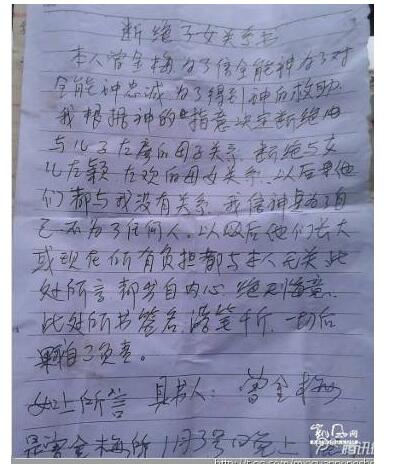 断绝子女关系书
本人曾金梅为了信全能神为了对
全能神忠诚为了得到神的救助
我根据神的"指意决定断绝
与儿子左彦的母子关系.断绝与女
儿左颖左欢的母女关系.以后是他
们都与我没有关系.我信神是为了自
己不为了任何人.以后他们长大
或现在所有负担都与本人无关此
处所言都出自内心绝
此处所书签名.落笔千斤.一切后
果自己负责。
如上所言 具书人: 曾金梅
是曾金梅所1月3号的晚上
腾讯